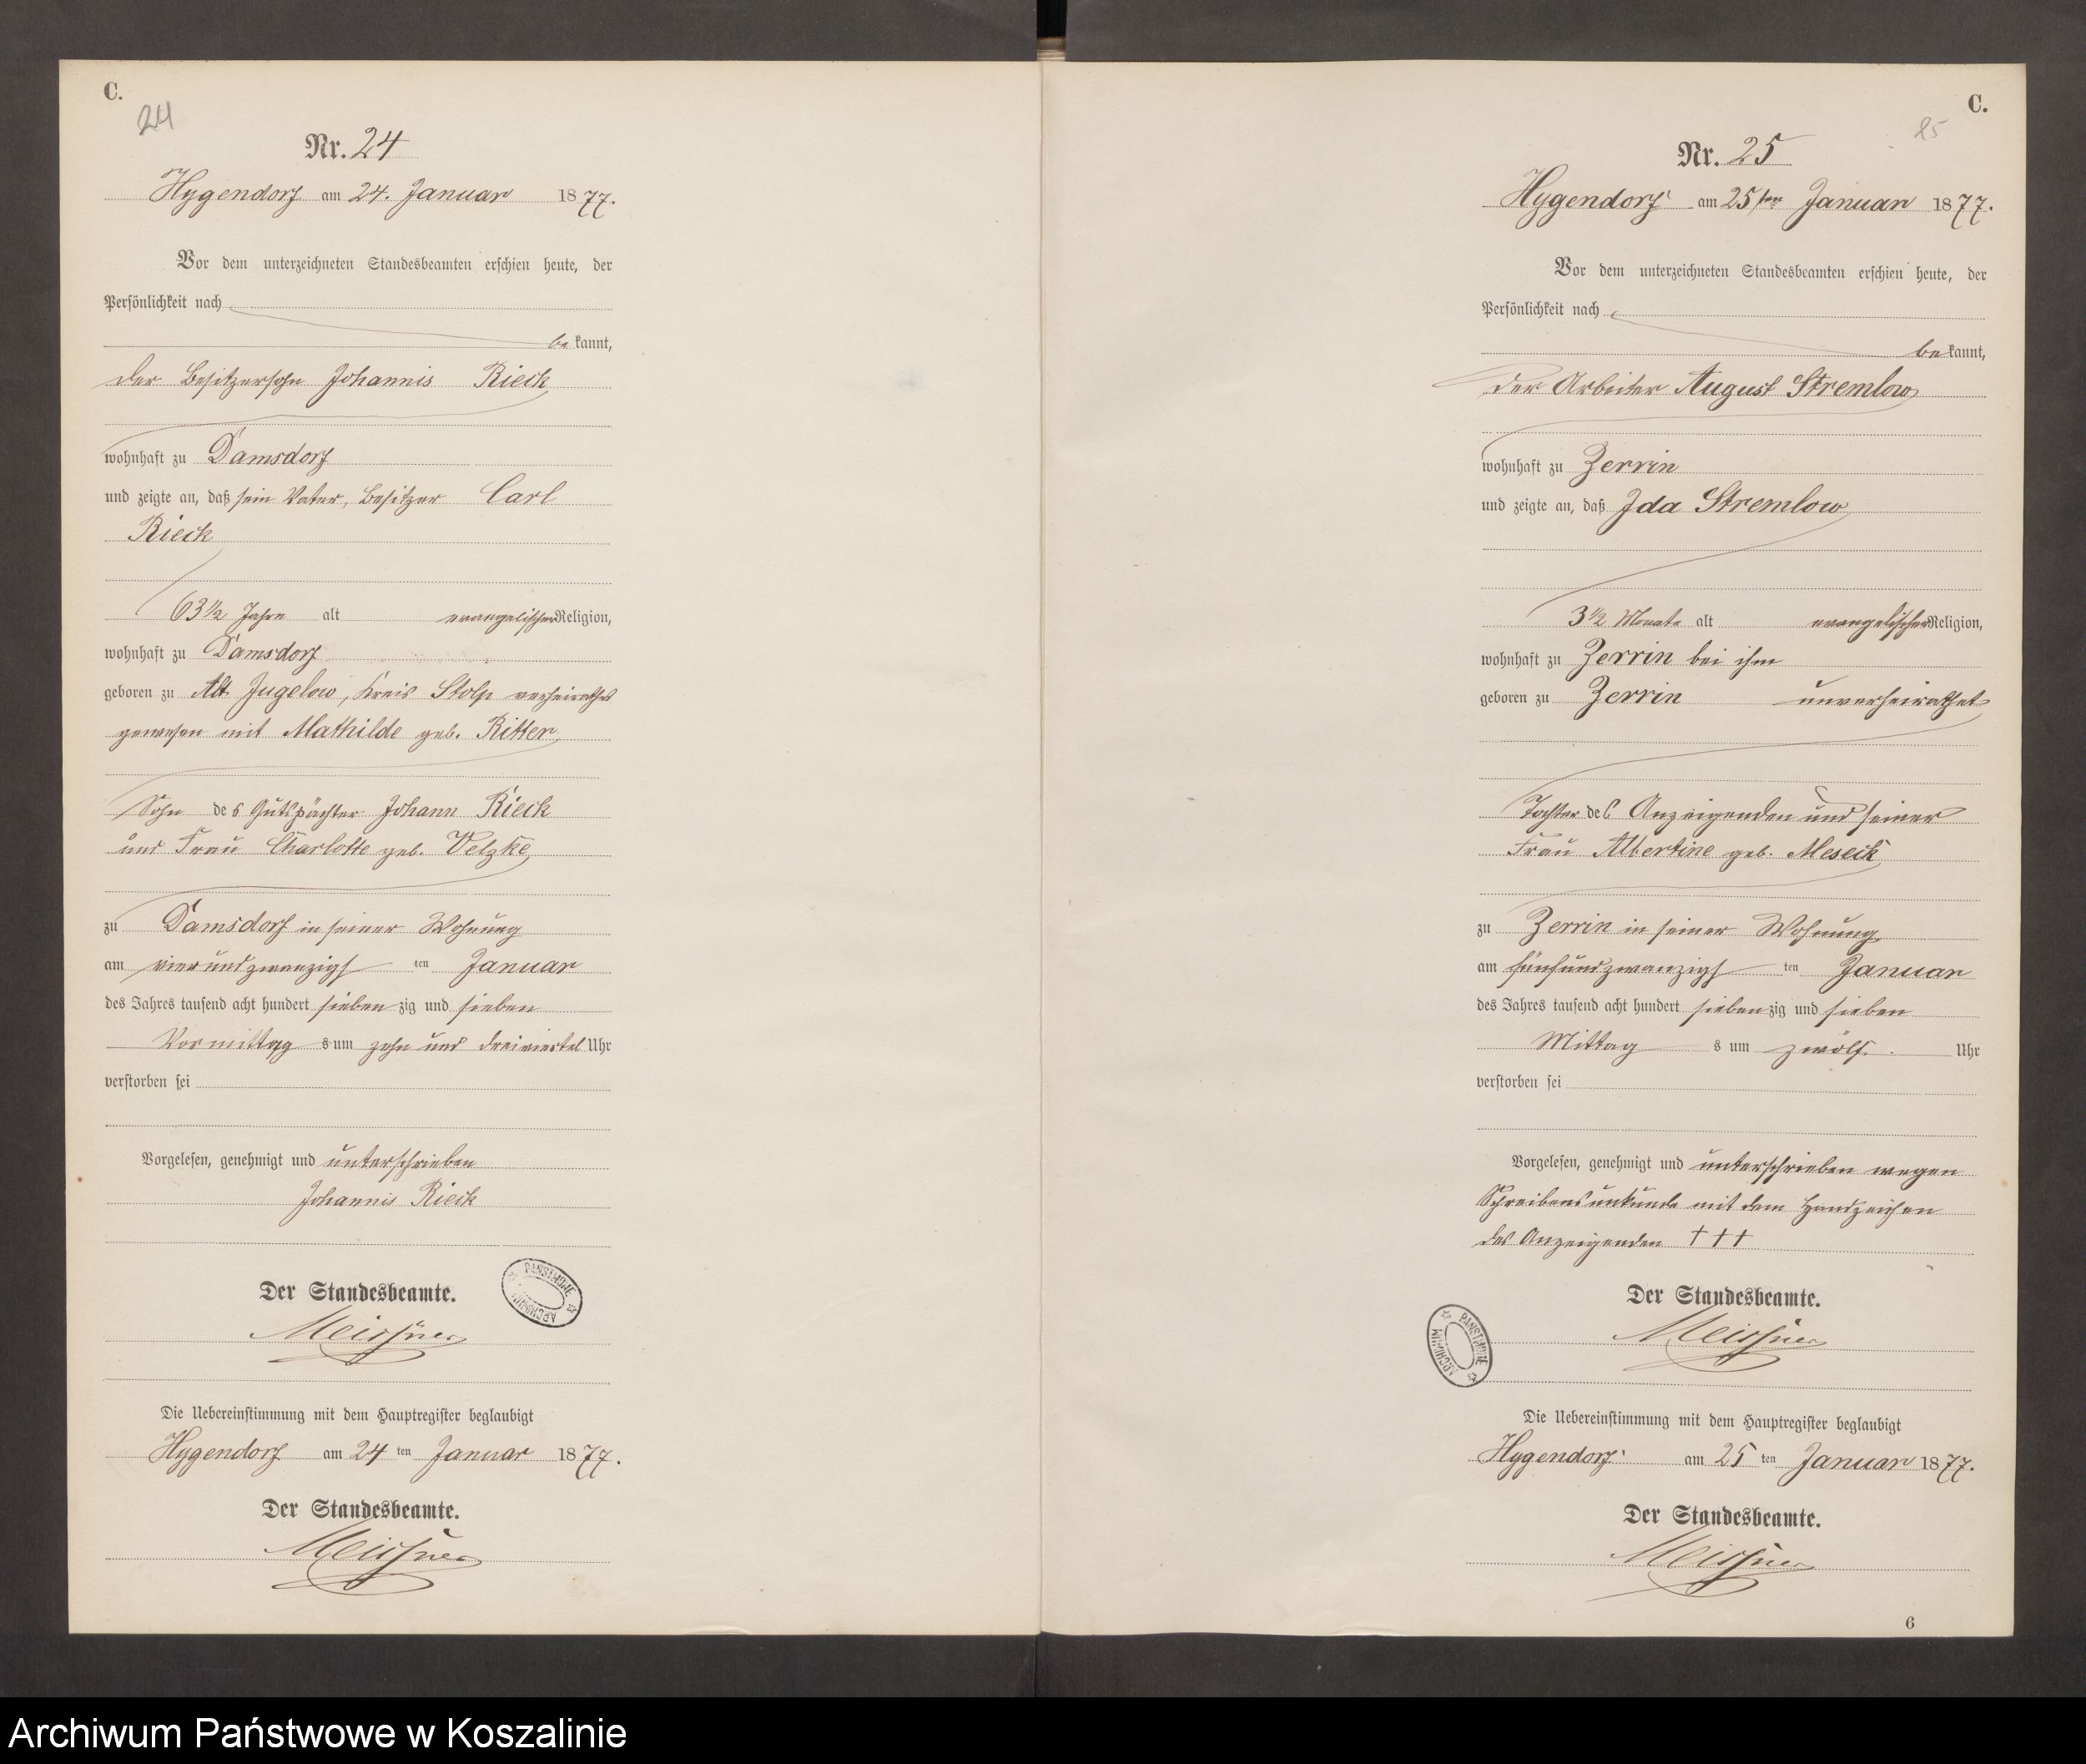 C.
24
Nr. 24
Hygendorf am 24. Januar 1877.
Vor dem unterzeichneten Standesbeamten erschien heute, der
Persönlichkeit nach
bekannt,
der Besitzersohn Johannis Rieck
wohnhaft zu Damsdorf
und zeigte an, daß sein Vater, Besitzer Carl
Rieck
63 1/2 Jahre alt evangelischer Religion,
wohnhaft zu Damsdorf
geboren zu Alt Jugelow, Kreis Stolp verheirathet
gewesen mit Mathilde geb. Ritter
Sohn des Gutspächter Johann Rieck
und Frau Charlotte geb. Velzke
zu Damsdorf in seiner Wohnung
am vierundzwanzigsten Januar
des Jahres tausend acht hundert siebenzig und sieben
Vormittags um zehn und dreiviertel Uhr
verstorben sei
Vorgelesen, genehmigt und unterschrieben
Johannis Rieck
Der Standesbeamte.
Meissner
PAŃSTWOWE ARCHIWUM
Die Uebereinstimmung mit dem Hauptregister beglaubigt
Hygendorf am 24ten Januar 1877.
Der Standesbeamte.
Meissner
C.
25
Nr. 25
Hygendorf am 25ten Januar 1877.
Vor dem unterzeichneten Standesbeamten erschien heute, der
Persönlichkeit nach
bekannt,
der Arbeiter August Stremlow
wohnhaft zu Zerrin
und zeigte an, daß Ida Stremlow
3 1/2 Monate alt evangelischer Religion,
wohnhaft zu Zerrin bei ihm
geboren zu Zerrin unverheirathet
Tochter des Anzeigenden und seiner
Frau Albertine geb. Meseck
zu Zerrin in seiner Wohnung
am fünfundzwanzigsten Januar
des Jahres tausend acht hundert siebenzig und sieben
Mittags um zwölf Uhr
verstorben sei
Vorgelesen, genehmigt und unterschrieben wegen
Schreibensunkunde mit dem Handzeichen
des Anzeigenden † † †
Der Standesbeamte.
Meissner
PAŃSTWOWE ARCHIWUM
Die Uebereinstimmung mit dem Hauptregister beglaubigt
Hygendorf am 25ten Januar 1877.
Der Standesbeamte.
Meissner
6
Archiwum Państwowe w Koszalinie